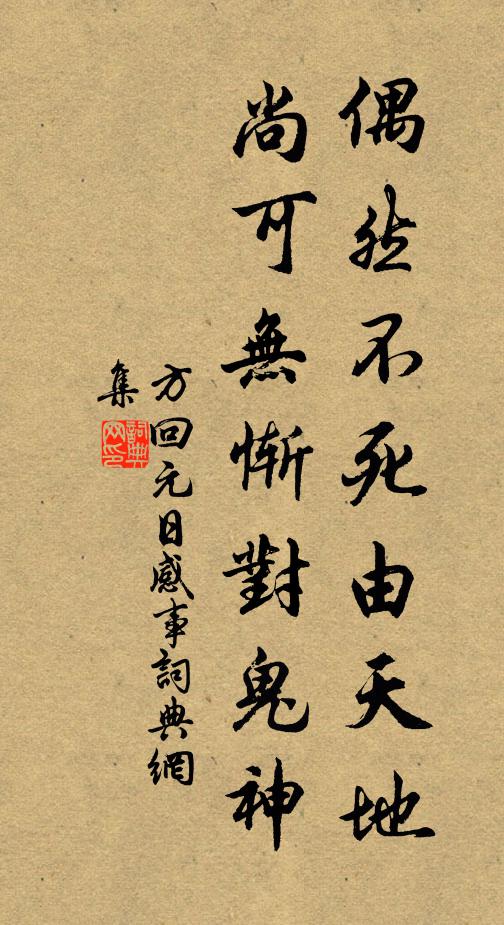 偶然不死由天地
尚可無慚對鬼神
方回元日感事詞典網
集
詞典網印